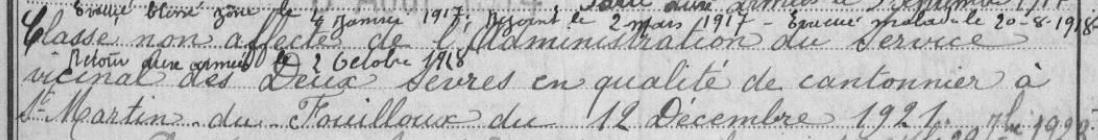 Evacué blessé zône le 4 Janvier 1917, Rejoint le 2 mars 1917 - Evacué malade le 20-8-1918
Classé non affecté de l'Administration du Service
Retour aux armées le 2 Octobre 1918
vicinal des Deux Sevres en qualité de cantonnier à
St Martin du Fouilloux du 12 Décembre 1921.